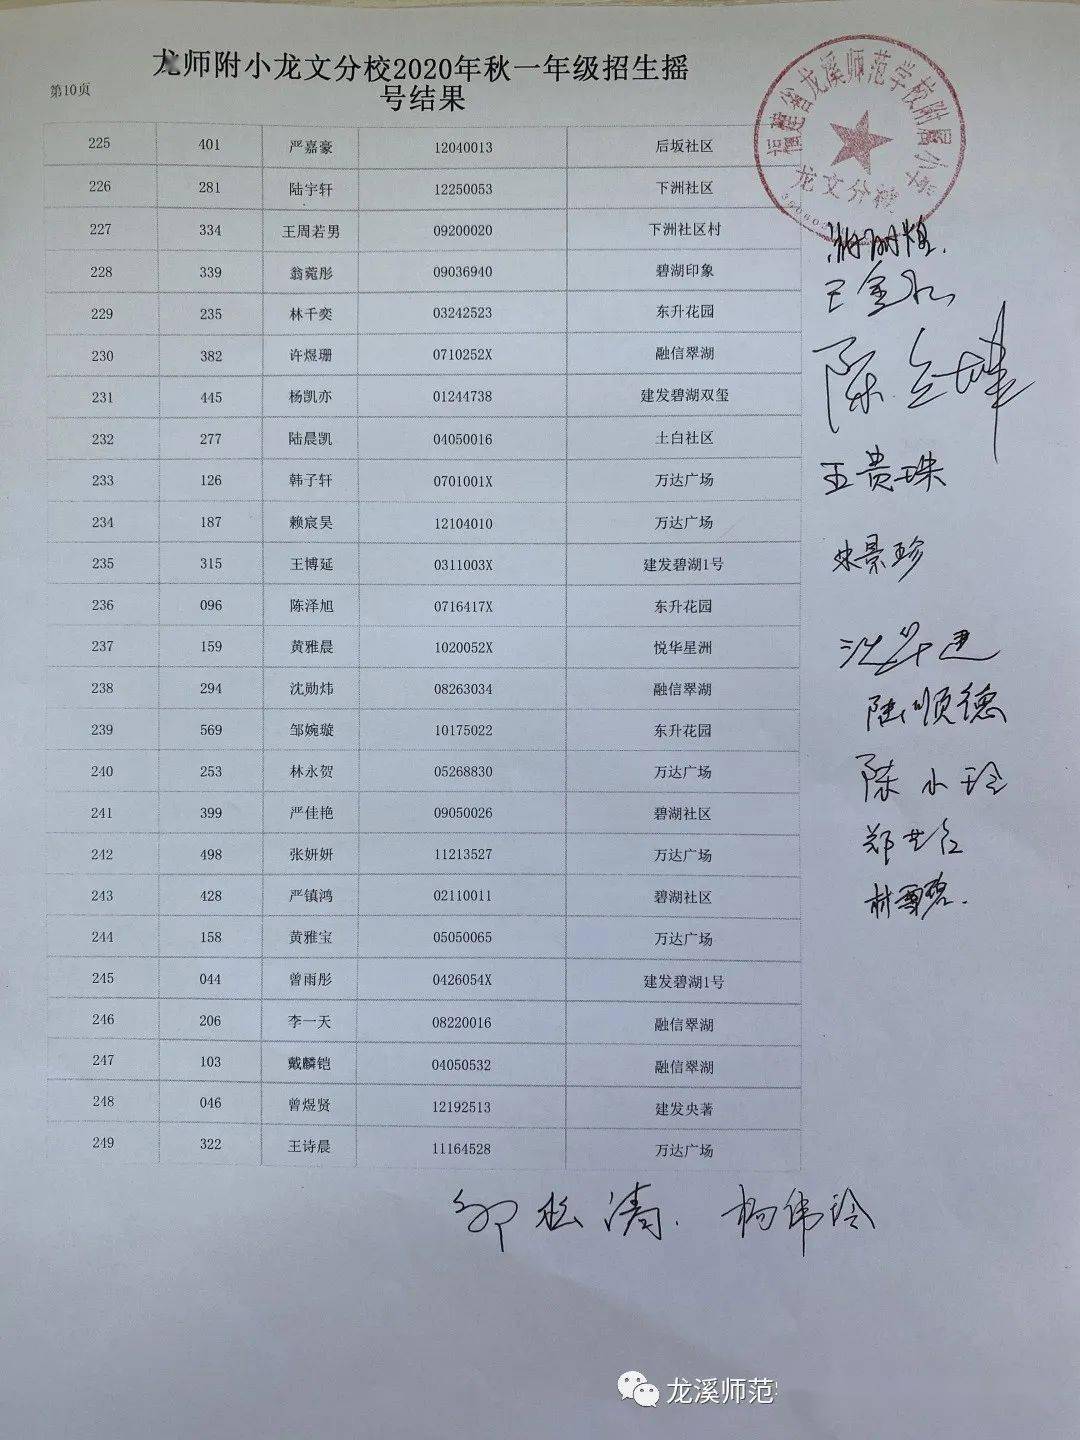 龙师附小龙文分校2020年秋一年级招生摇
号结果
第10页
225 401 严嘉豪 12040013 后坂社区
226 281 陆宇轩 12250053 下洲社区
227 334 王周若男 09200020 下洲社区村
228 339 翁菀彤 09036940 碧湖印象
229 235 林千奕 03242523 东升花园
230 382 许煜珊 0710252X 融信翠湖
231 445 杨凯亦 01244738 建发碧湖双玺
232 277 陆晨凯 04050016 土白社区
233 126 韩子轩 0701001X 万达广场
234 187 赖宸昊 12104010 万达广场
235 315 王博延 0311003X 建发碧湖1号
236 096 陈泽旭 0716417X 东升花园
237 159 黄雅晨 1020052X 悦华星洲
238 294 沈勋炜 08263034 融信翠湖
239 569 邹婉璇 10175022 东升花园
240 253 林永贺 05268830 万达广场
241 399 严佳艳 09050026 碧湖社区
242 498 张妍妍 11213527 万达广场
243 428 严镇鸿 02110011 碧湖社区
244 158 黄雅宝 05050065 万达广场
245 044 曾雨彤 0426054X 建发碧湖1号
246 206 李一天 08220016 融信翠湖
247 103 戴麟铠 04050532 融信翠湖
248 046 曾煜贤 12192513 建发央著
249 322 王诗晨 11164528 万达广场
福建省龙溪师范学校附属小学
龙文分校
王贵珠
陆顺德
陈小玲
杨伟玲
龙溪师范